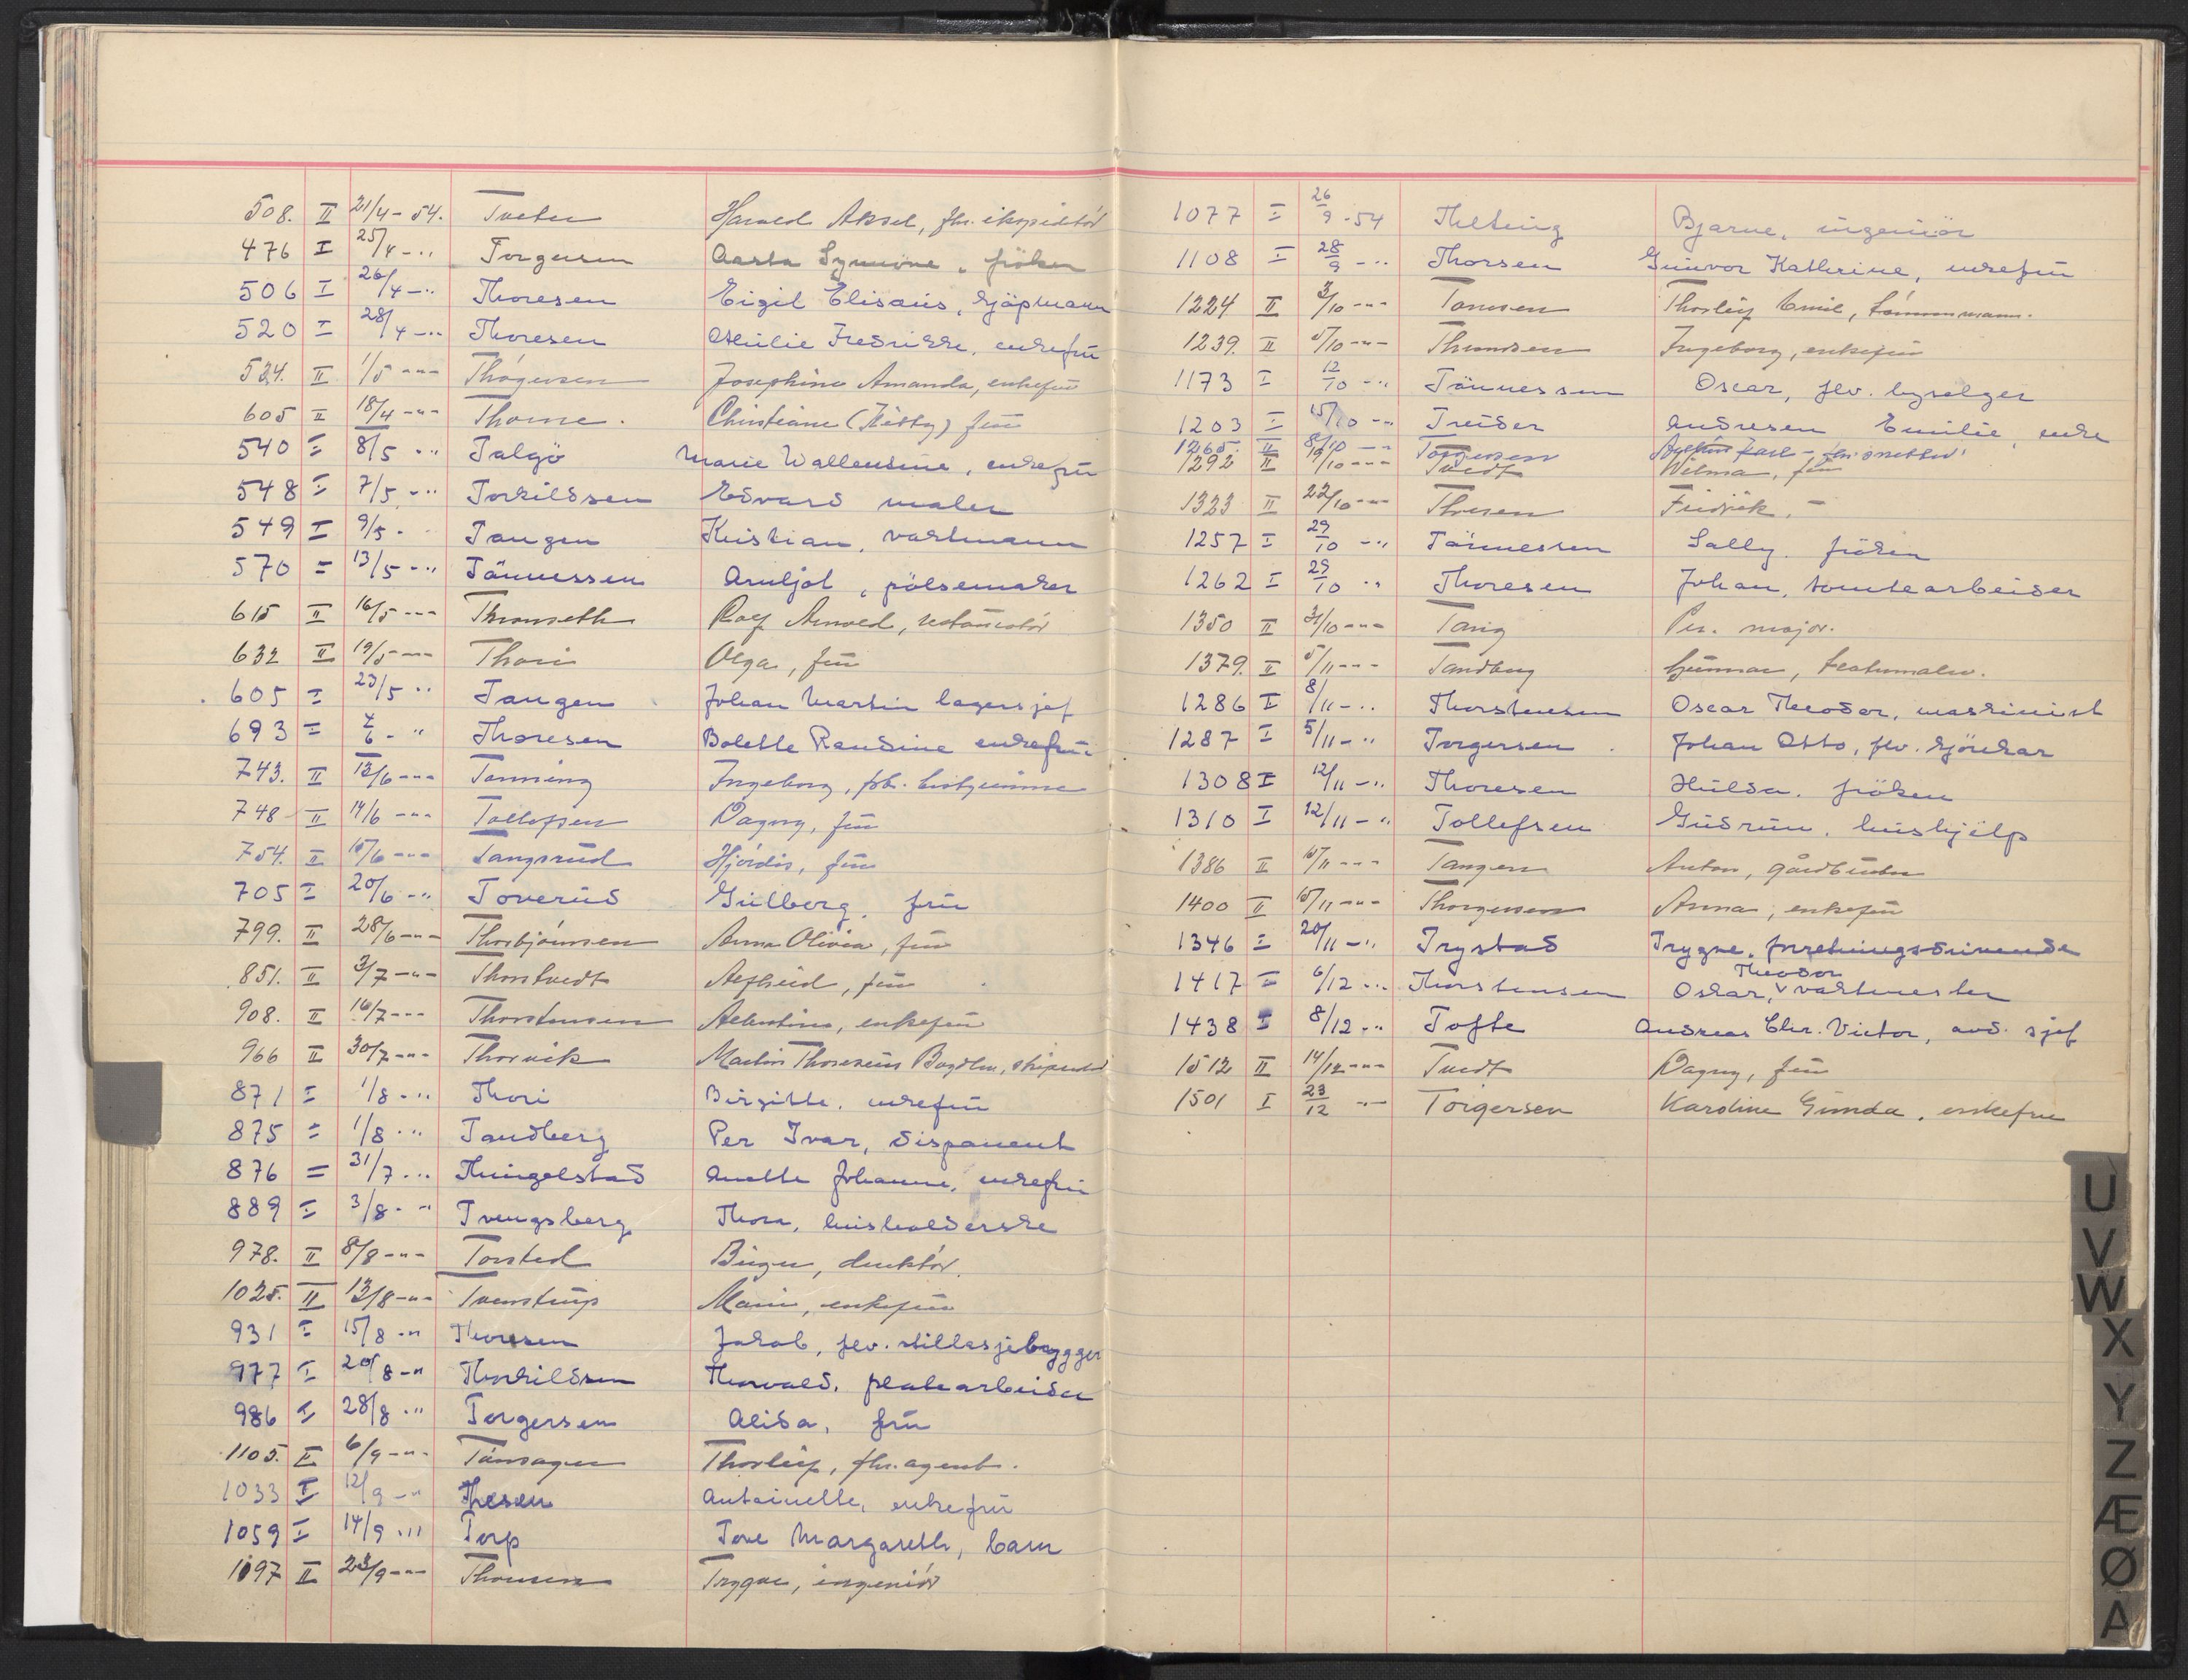 508. II 21/4 - 54. Tveter Harald Aksel, fhv. ekspeditör
476 I 25/4 - " Torgersen Aasta Synnöve, fröken
506 I 26/4 - " Thoresen Eigil Elisæus, kjöpmann
520 I 28/4 - " Thoresen Othilie Fredrikke, enkefru
534. II 1/5 - " - Thögersen Josephine Amanda, enkefru
605 II 18/4 - " - Thorne. Christiane (Kitty) frue
540 I 8/5 - " Talgö Marie Wallentine, enkefru
548 I 7/5 - " Torkildsen Edvard maler
549 I 9/5 - Tangen Kristian, vaktmann
570 = 13/5 - " Tönnessen Arnljot, pölsemaker
615 II 16/5 - " - Thronseth Rolf Arnold, restauratör
632 II 19/5 - " - Thori Olga, frue
605 I 23/5 " Tangen Johan Martin lagersjef
693 = 4/6 - " Thoresen Bolette Randine enkefru
743. II 13/6 - " - Tonning Ingeborg, fhv. bestyrerinne
748 II 14/6 - " - Tollefsen Dagny, frue
754. II 16/6 - " - Tangsrud Hjördis, frue
705 I 20/6 - " Toverud Gulborg, fru
799. II 28/6 - " - Thorbjörnsen Anna Olivia, frue
851. II 3/7 - " - Thorstvedt Alfhild, frue
908. II 16/7 - " - Thorstensen Albertine, enkefrue
966 II 30/7 - " - Thorvik Martin Thoresen
871 I 1/8 - " Thori Birgitte, enkefru
875 = 1/8 - " Tandberg Per Ivar, disponent
876 = 31/7 - " Thingelstad Anette Johanne, enkefru
889 I 3/8 - " Tvengsberg Thora, husholderske
978. II 8/8 - " - Torsted Birger, direktör.
1025. II 13/8 - " - Tvenstrup Marie, enkefrue
931 I 15/8 - " Thoresen Jakob, fhv. stillasjebygger
977 I 20/8 - " Thorkildsen Thorvald, platearbeider
986 I 28/8 - " Torgersen Alida, fru
1105. II 6/9 - " - Tönsager Thorleif, fhv. agent.
1033 I 12/9 - " Thesen Antoinette, enkefru
1059 I 14/9 - " Torp Tove Margareth, barn
1097 II 23/9 - " - Thomsen Trygve, ingeniör
1077 I 26/9 - 54 Thelting Bjarne, ingeniör
1108 I 28/9 - " Thorsen Gunvor Kathrine, enkefru
1224 II 3/10 - " - Tomsen Thorleif Emil, tömmermann.
1239. II 5/10 - " - Thomsen Ingeborg, enkefrue
1173 I 12/10 - " Tönnessen Oscar, fhv. byselger
1203 I 15/10 - " Treider Andresen Emilie, enke
1265. II 8/10 - " - Torgersen
1292 II 19/10 - " - Tvedt Wilma, frue
1323 II 22/10 - " - Thoresen Fredrik, -
1257 I 29/10 - " Tönnessen Sally, fröken
1262 I 29/10 " Thoresen Johan, tomtearbeider
1350 II 31/10 - " - Tang Per. major.
1379. II 5/11 - " - Tandberg Gunnar, teatermaler.
1286 I 8/11 - " Thorstensen Oscar Theodor, maskinist
1287 I 5/11 - " Torgersen Johan Otto, fhv. kjörekar
1308 I 12/11 - " Thoresen Hulda, fröken
1310 I 12/11 - " Tollefsen Gudrun, hushjelp
1386 II 15/11 - " - Tangen Anton, gårdbruker
1400 II 15/11 - " - Thorgersen Anna, enkefrue
1346 I 20/11 - " Trystad Trygve, forretningsdrivende
1417 I 6/12 - " Thorstensen Oskar, Theodor vaktmester
1438 I 8/12 - " Tofte Andreas Chr. Victor, avd. sjef
1512 II 14/12 - " - Tvedt Dagny, frue
1501 I 23/12 - " - Torgersen Karoline Gunda, enkefrue
U
V
W
X
Y
Z
Æ
Ø
A